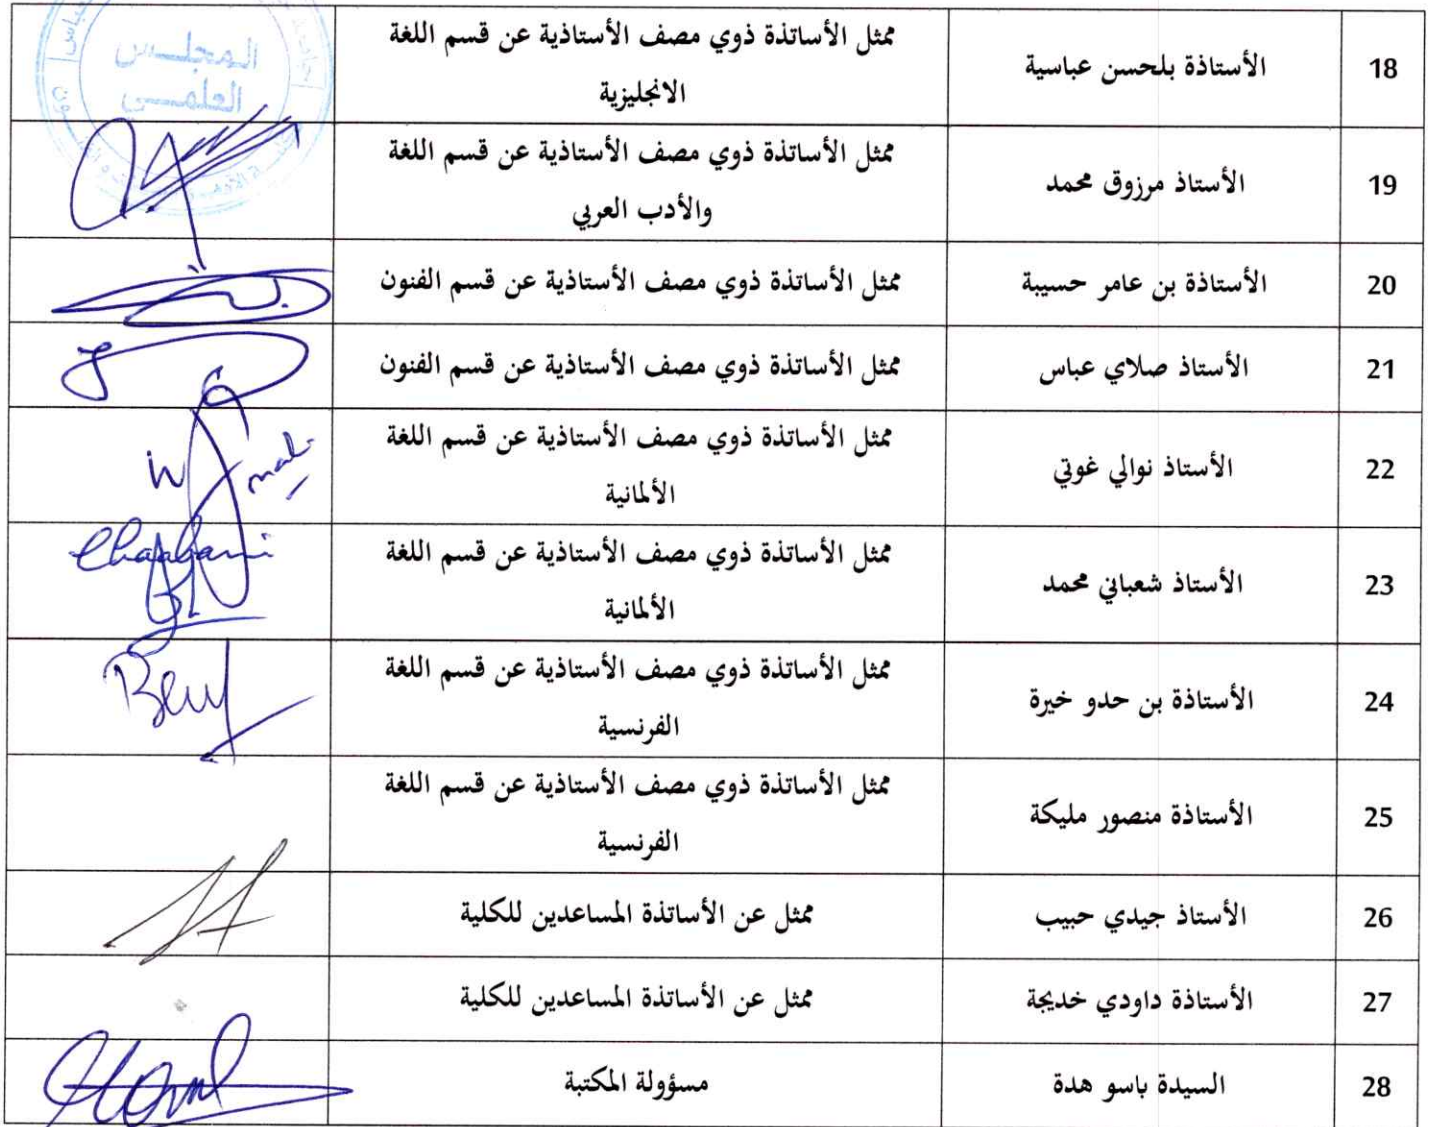 18 الأستاذة بلحسن عباسية ممثل الأساتذة ذوي مصف الأستاذية عن قسم اللغة
الانجليزية
المجلس
العلمي
19 الأستاذ مرزوق محمد ممثل الأساتذة ذوي مصف الأستاذية عن قسم اللغة
والأدب العربي
20 الأستاذة بن عامر حسيبة ممثل الأساتذة ذوي مصف الأستاذية عن قسم الفنون
21 الأستاذ صلاي عباس ممثل الأساتذة ذوي مصف الأستاذية عن قسم الفنون
22 الأستاذ نوالي غوتي ممثل الأساتذة ذوي مصف الأستاذية عن قسم اللغة
الألمانية
23 الأستاذ شعباني محمد ممثل الأساتذة ذوي مصف الأستاذية عن قسم اللغة
الألمانية
Chaabani
24 الأستاذة بن حدو خيرة ممثل الأساتذة ذوي مصف الأستاذية عن قسم اللغة
الفرنسية
25 الأستاذة منصور مليكة ممثل الأساتذة ذوي مصف الأستاذية عن قسم اللغة
الفرنسية
26 الأستاذ جيدي حبيب ممثل عن الأساتذة المساعدين للكلية
27 الأستاذة داودي خديجة ممثل عن الأساتذة المساعدين للكلية
28 السيدة باسو هدة مسؤولة المكتبة